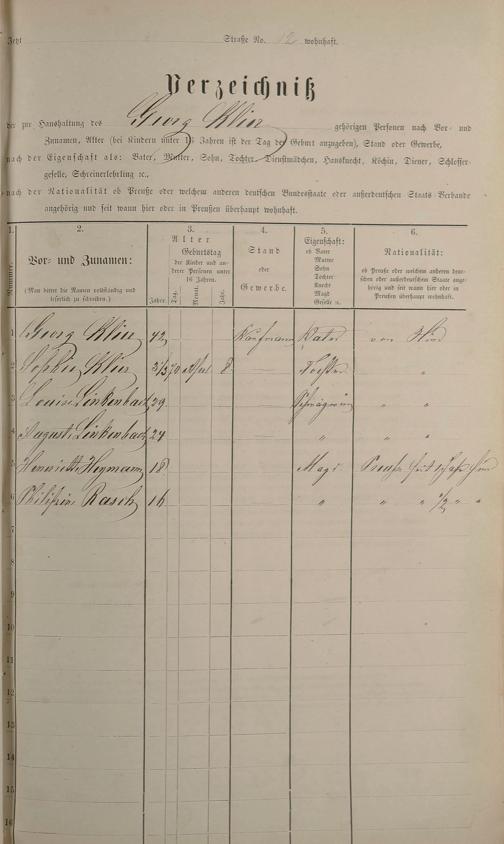 Jetzt Straße No. 12 wohnhaft.
Verzeichniß
der zur Haushaltung des Georg Klier gehörigen Personen nach Vor- und
Zunamen, Alter (bei Kindern unter 16 Jahren ist der Tag der Geburt anzugeben), Stand oder Gewerbe,
nach der Eigenschaft als: Vater, Mutter, Sohn, Tochter, Dienstmädchen, Hausknecht, Köchin, Diener, Schlosser-
geselle, Schreinerlehrling ꝛc.,
nach der Nationalität ob Preuße oder welchem anderen deutschen Bundesstaate oder außerdeutschen Staats-Verbande
angehörig und seit wann hier oder in Preußen überhaupt wohnhaft.
1. 2. 3. 4. 5. 6.
Nummer.
Vor- und Zunamen:
(Man bittet die Namen vollständig und
leserlich zu schreiben.)
Alter
Geburtstag
der Kinder und an-
derer Personen unter
16 Jahren.
Jahre. Tag. Monat. Jahr.
Stand
oder
Gewerbe.
Eigenschaft:
ob Vater
Mutter
Sohn
Tochter
Knecht
Magd
Geselle u.
Nationalität:
ob Preuße oder welchem anderen deut-
schen oder außerdeutschen Staate ange-
hörig und seit wann hier oder in
Preußen überhaupt wohnhaft.
1 Georg Klier 42 Kaufmann Vater von hier
2 Sophie Klier 8 Tochter "
3 Louise Linkenbach 29 Schwägerin " "
4 August Linkenbach 24 " " "
5 Henriette Heymann 18 Magd Preuße seit
6 Philippine Rasch 16 " " " 1/2 " "
7
8
9
10
11
12
13
14
15
16